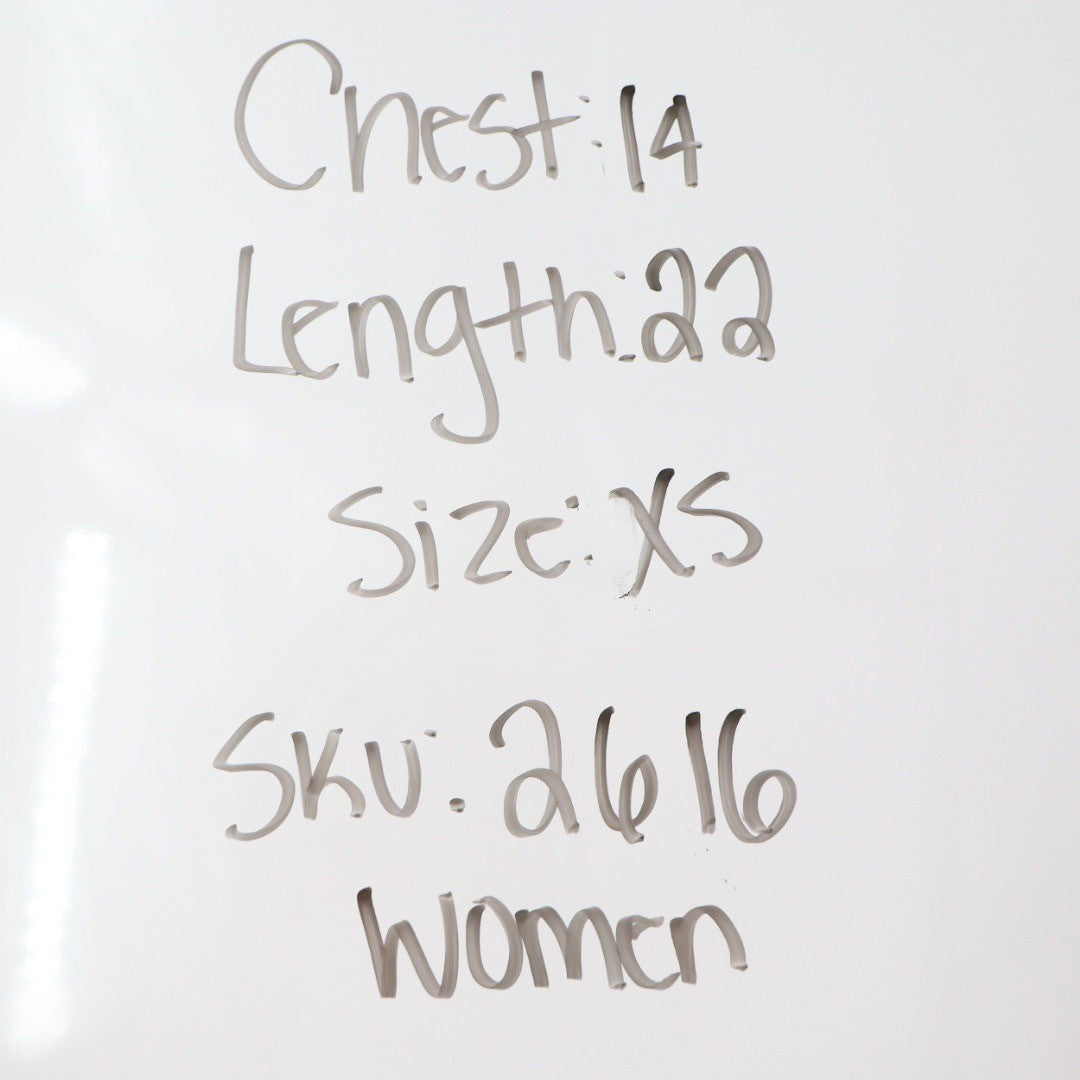 Chest: 14
Length: 22
Size: XS
SKU: 2616
Women